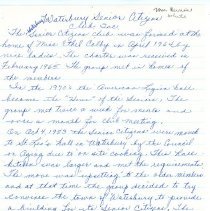 Waterbury Senior Citizens
Club Inc.
The Senior Citizens club was formed at the
home of Miss Ethel Colby in April 1964 by
nine ladies. The charter was received in
February 1965. The group met in homes of
the members
In the 1970's the American Legion hall
became the "Home" of the Seniors. The
group met twice a week for meals and
once a month for club meeting.
On Oct 9, 1983 the Senior Citizens were moved
to St Leo's Hall in Waterbury by the Council
on Aging due to on site cooking. This
kitchen was larger and met the requirements
The move was upsetting to the older members
and at that time the group decided to try
convince the town of Waterbury to provide
a building for its Senior Citizens. The